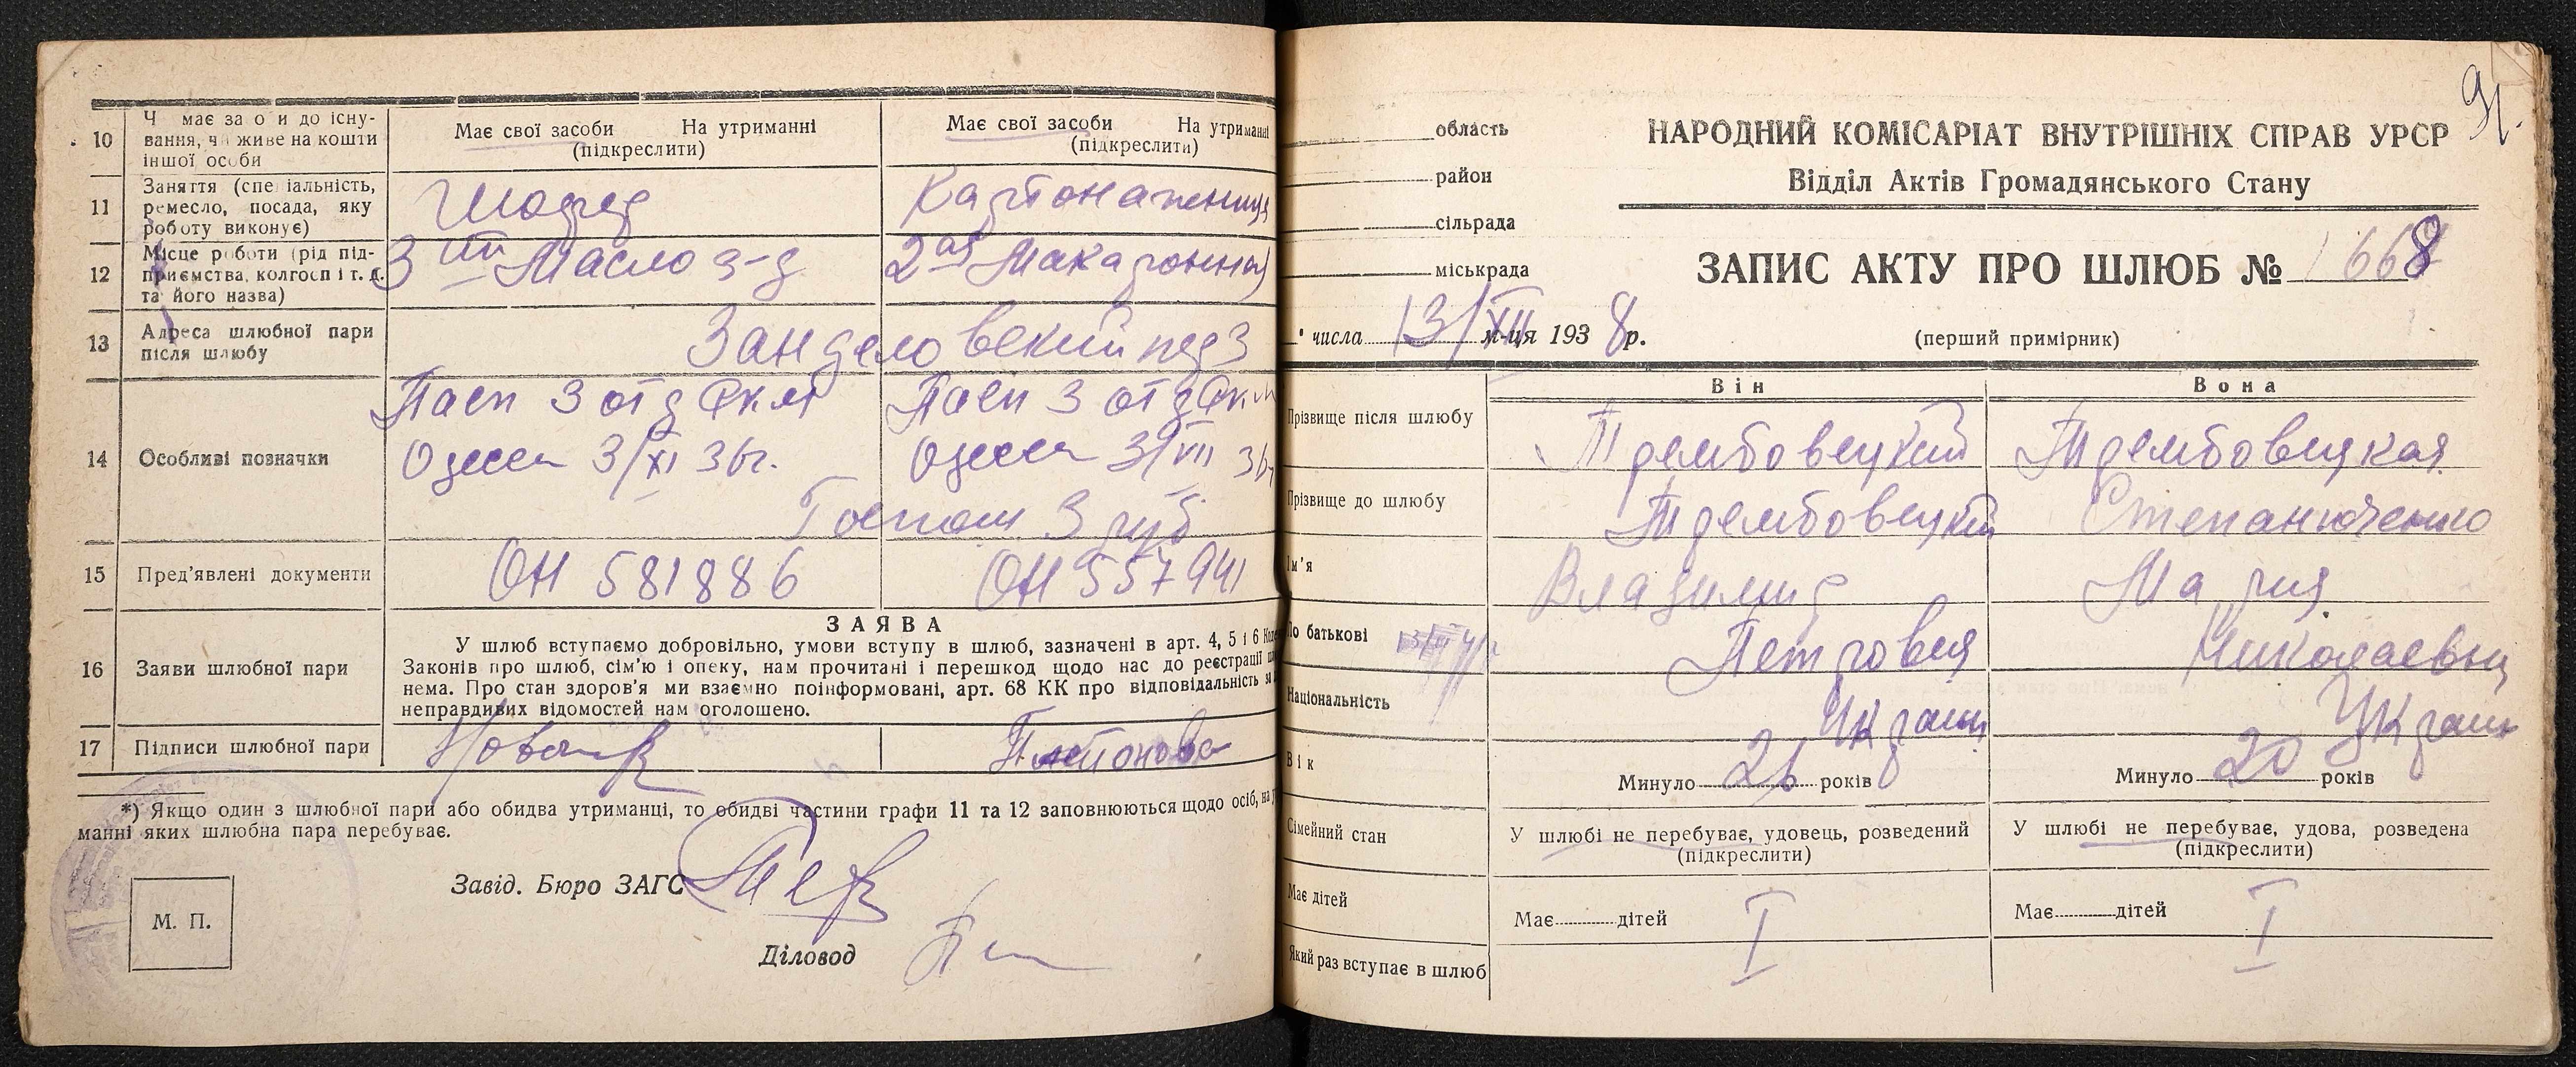 10
Ч має за о и до існу-
вання, чи живе на кошти
іншої особи
Має свої засоби На утриманні
(підкреслити)
Має свої засоби На утриманні
(підкреслити)
11
Заняття (спе іальність,
ремесло, посада, яку
роботу виконує)
Шофер
Картонажница
12
Місце роботи (рід під-
приємства, колгосп і т. д.
та його назва)
3ий Масло з-д
2ая Макаронная
13
Адреса шлюбної пари
після шлюбу
14
Особливі позначки
Пасп 3 отд
Одесса 3/XI 36г.
Пасп 3 отд
Одесса 3/VII 36
Госпош 3 руб
15
Пред'явлені документи
ОН 581886
ОН 557941
16
Заяви шлюбної пари
ЗАЯВА
У шлюб вступаємо добровільно, умови вступу в шлюб, зазначені в арт. 4, 5 і 6
Законів про шлюб, сім'ю і опеку, нам прочитані і перешкод щодо нас до реєстрації
нема. Про стан здоров'я ми взаємно поінформовані, арт. 68 КК про відповідальність за
неправдивих відомостей нам оголошено.
17
Підписи шлюбної пари
*) Якщо один з шлюбної пари або обидва утриманці, то обидві частини графи 11 та 12 заповнюються щодо осіб, на
манні яких шлюбна пара перебуває.
М. П.
Завід. Бюро ЗАГС
Діловод
91.
область
район
сільрада
міськрада
НАРОДНИЙ КОМІСАРІАТ ВНУТРІШНІХ СПРАВ УРСР
Відділ Актів Громадянського Стану
ЗАПИС АКТУ ПРО ШЛЮБ № 1668
" числа 13/XII м-ця 1938р.
(перший примірник)
Він
Вона
Прізвище після шлюбу
Трембовецкий
Трембовецкая
Прізвище до шлюбу
Трембовецкий
Степанюченко
Ім'я
Владимир
Мария
По батькові
Петрович
Николаевна
Національність
Украин
Украин
Вік
Минуло 26 років
Минуло 20 років
Сімейний стан
У шлюбі не перебуває, удовець, розведений
(підкреслити)
У шлюбі не перебуває, удова, розведена
(підкреслити)
Має дітей
Має дітей
Має дітей
Який раз вступає в шлюб
I
I